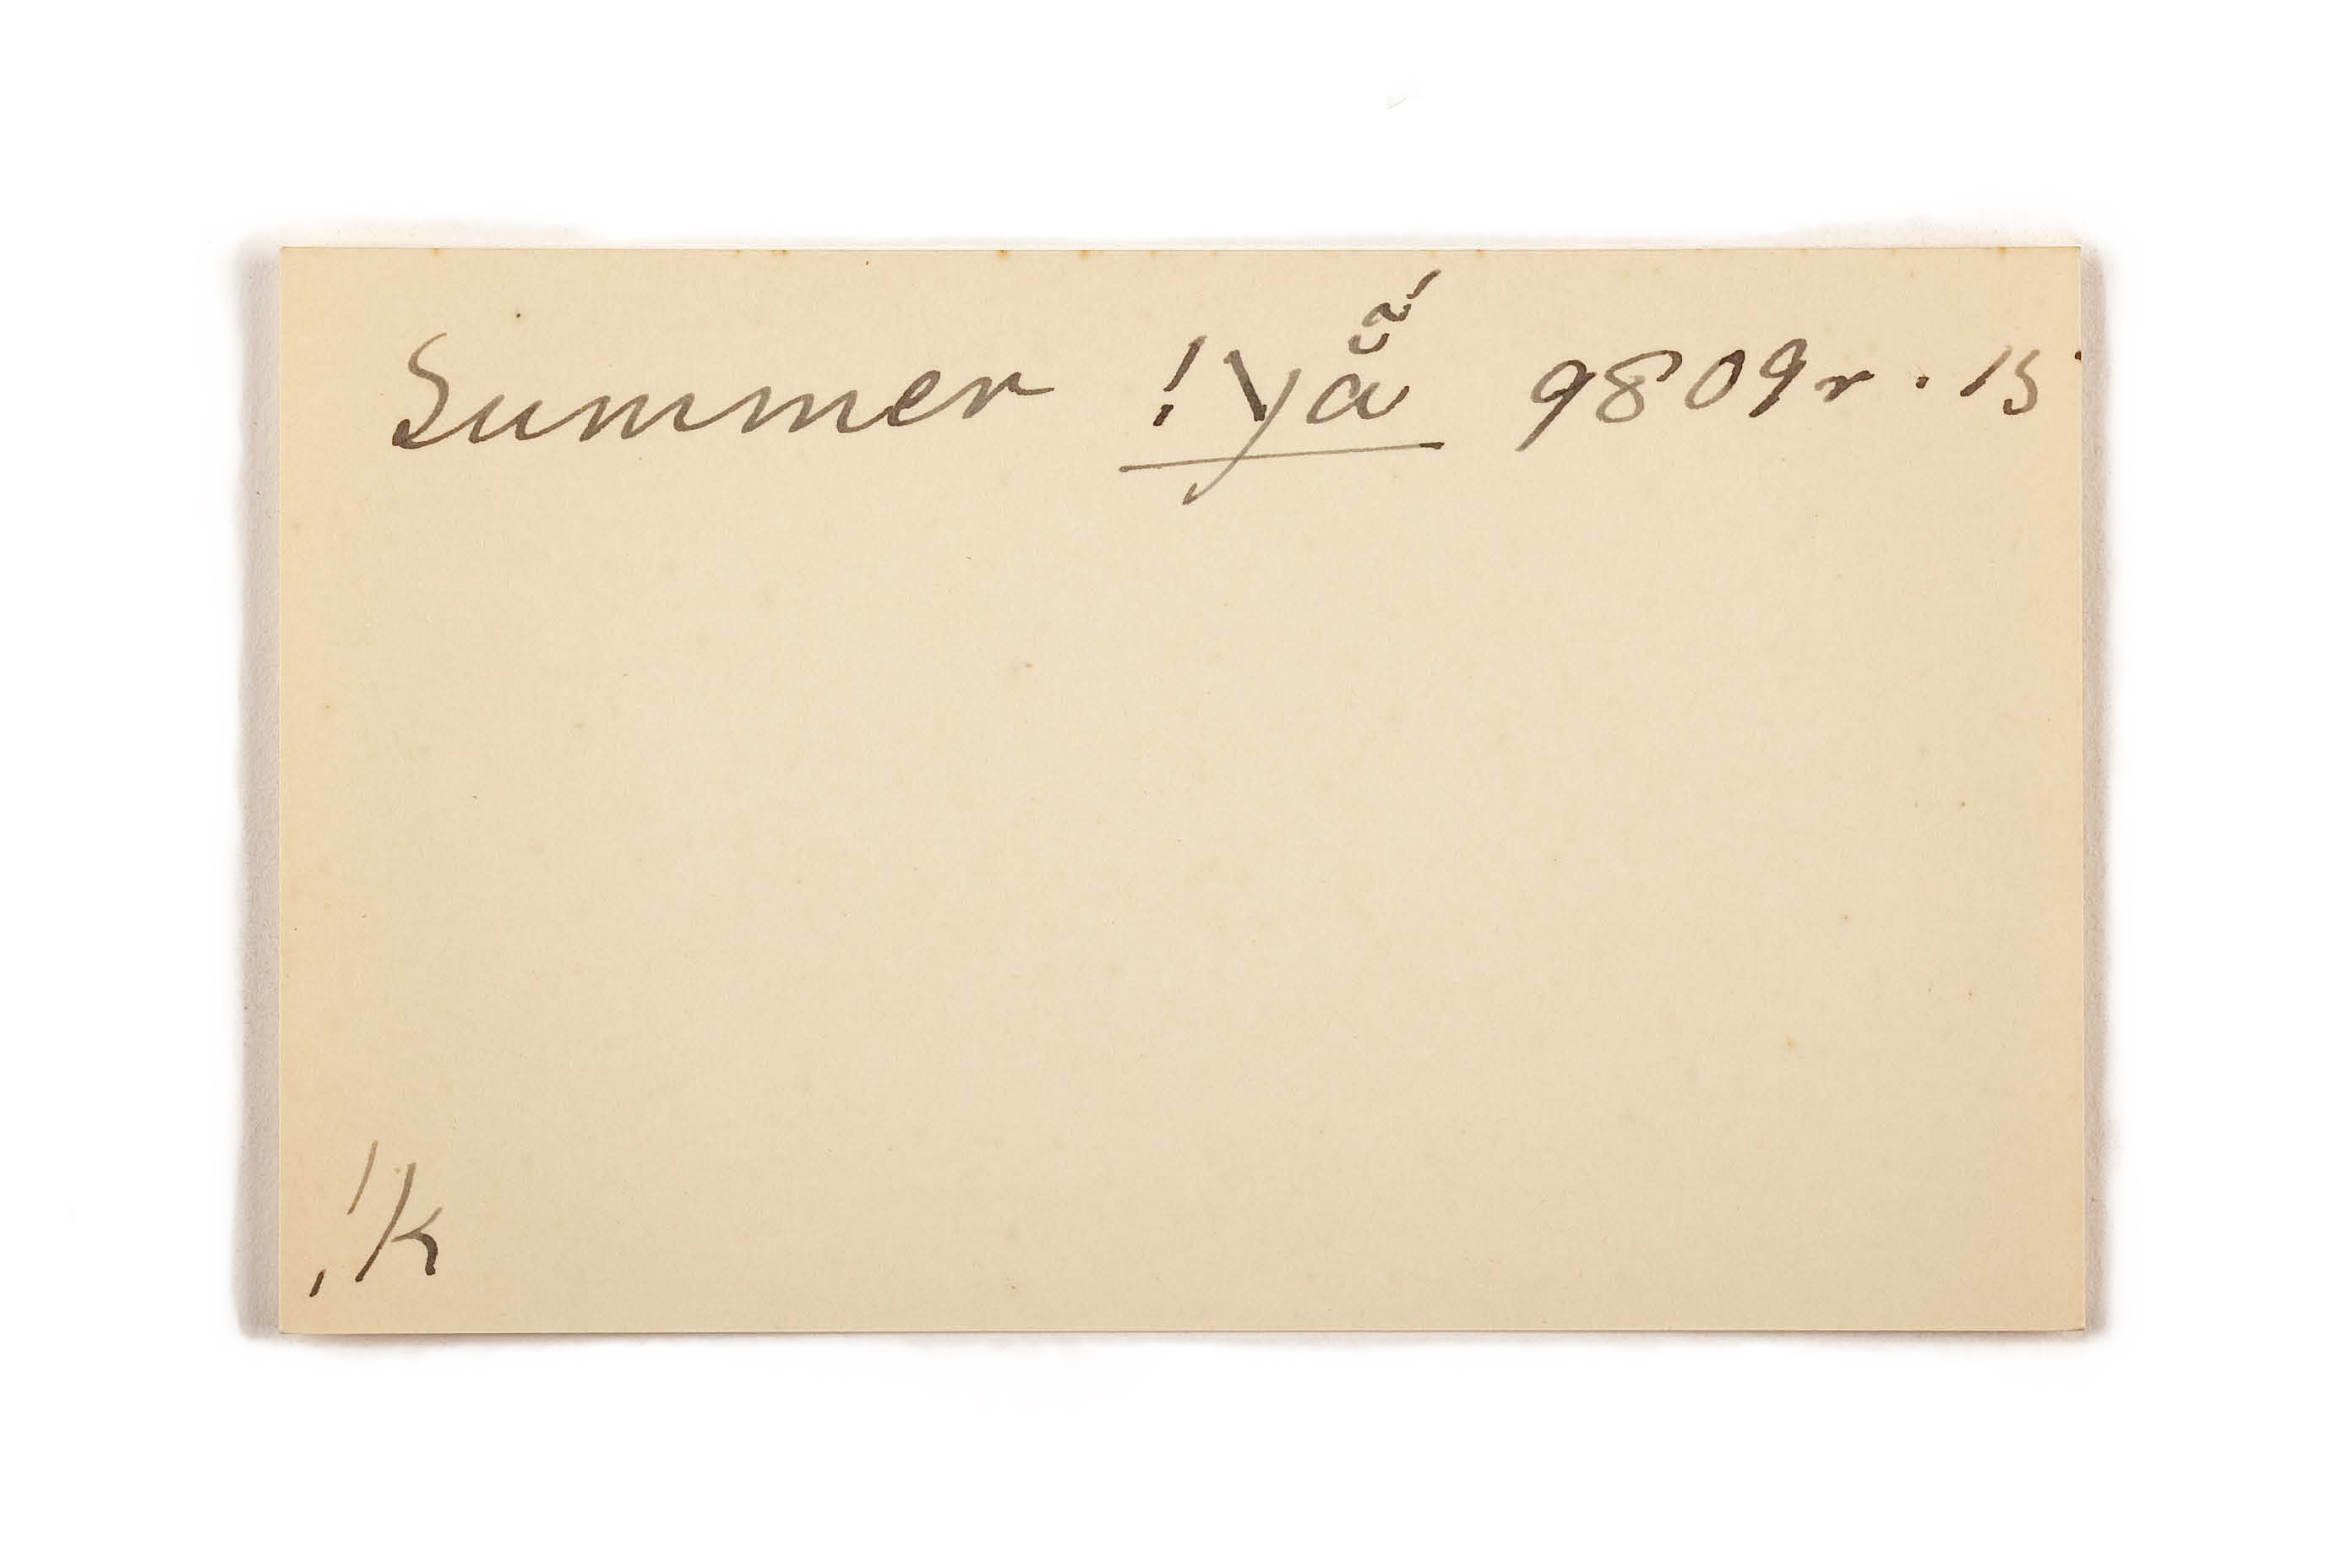 Summer !\yắ̃ 9809r. 15
!k